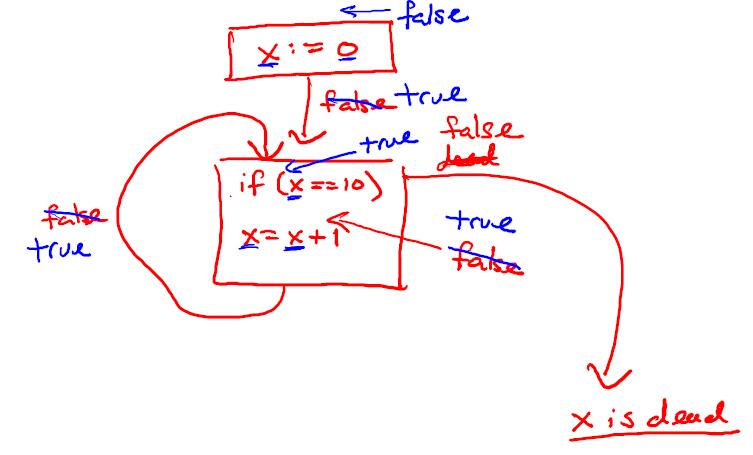 false
x := 0
false true
true
false
dead
if (x==10)
false
true
x=x+1
true
false
x is dead